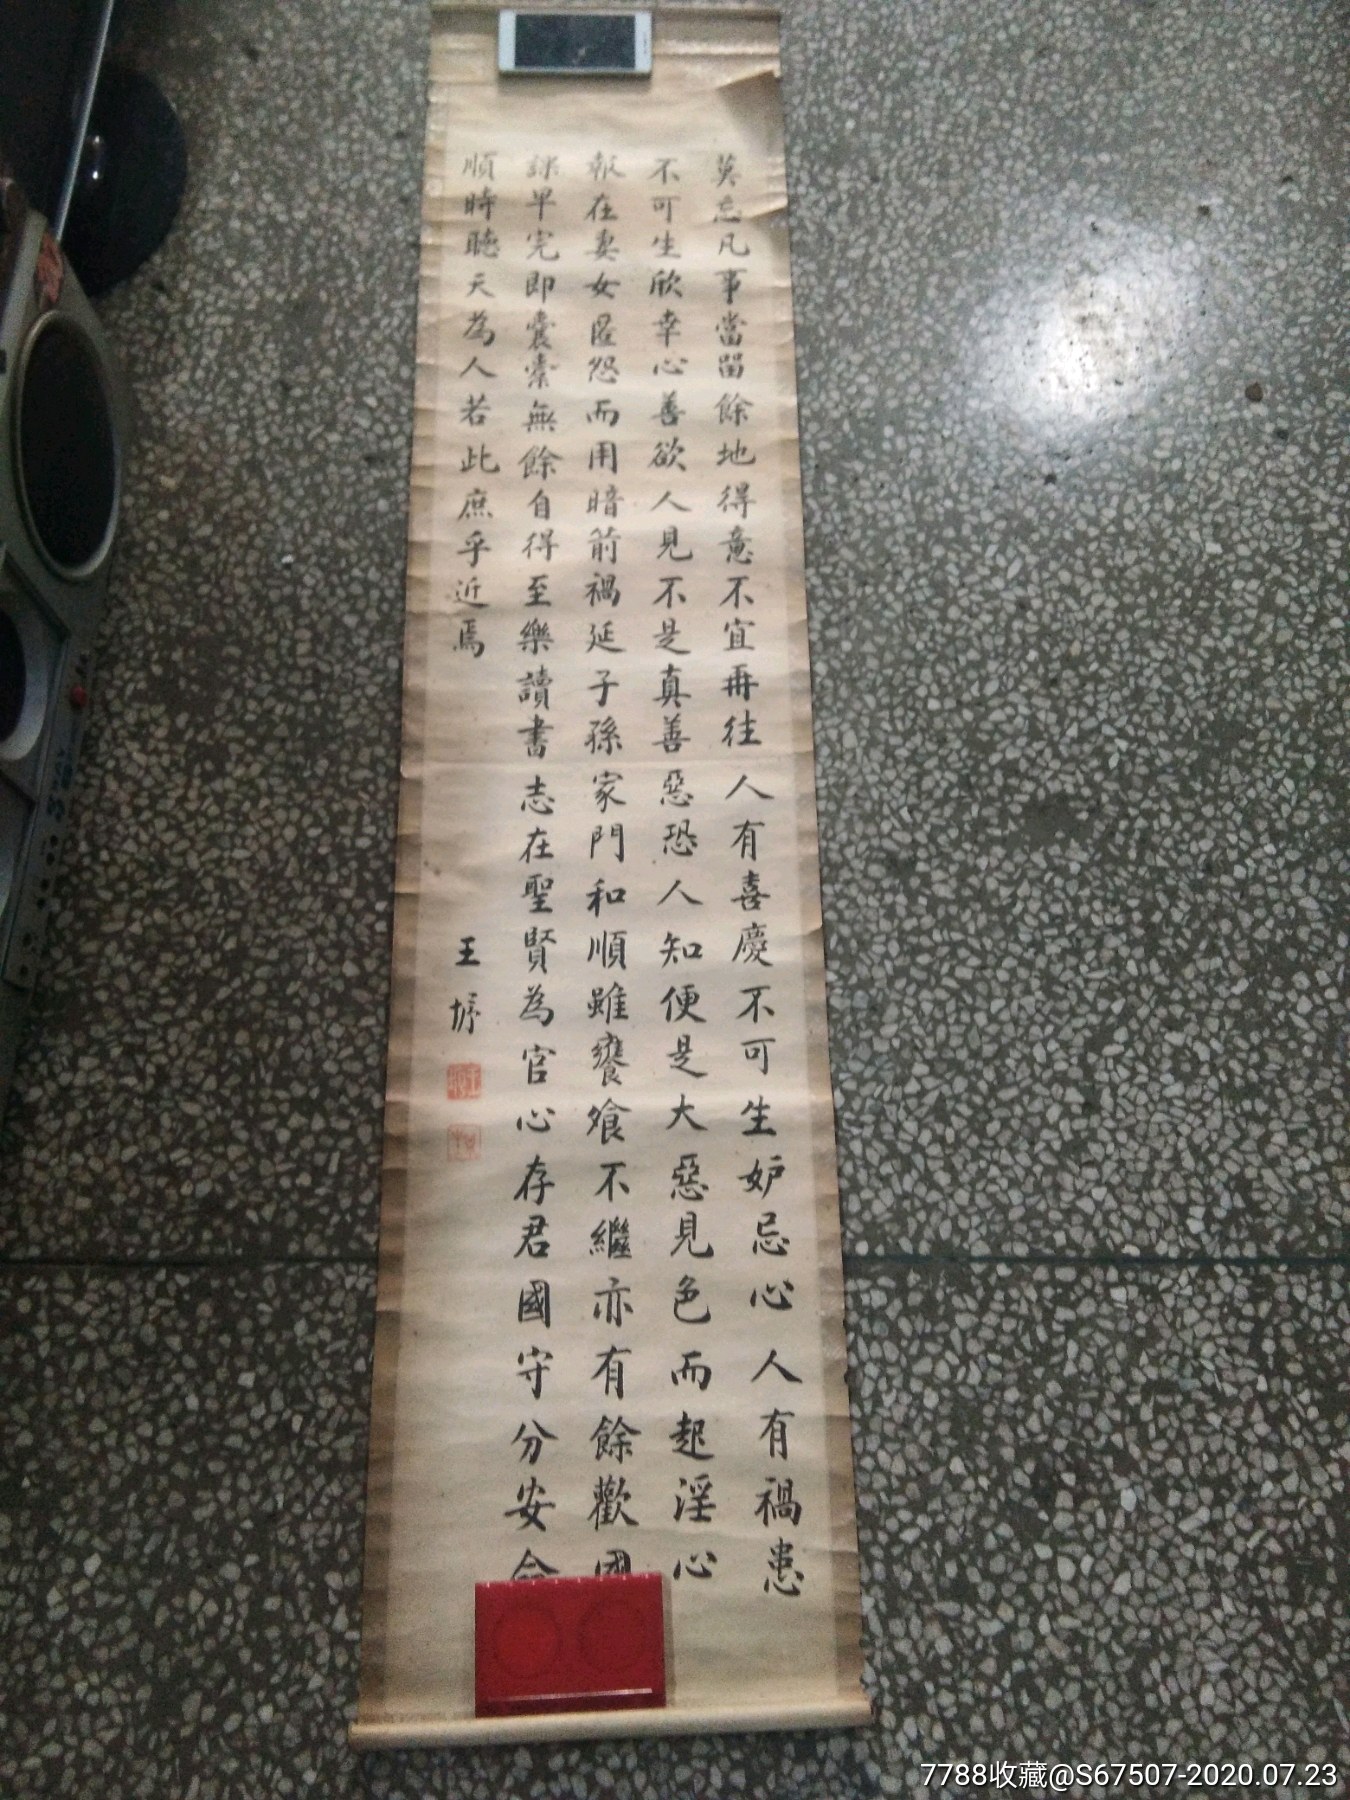 莫忘凡事當留餘地得意不宜再往人有喜慶不可生妒忌心人有禍患
不可生欣幸心善欲人見不是真善惡恐人知便是大惡見色而起淫心
報在妻女匿怨而用暗箭禍延子孫家門和順雖饔飧不繼亦有餘歡國
課早完即囊橐無餘自得至樂讀書志在聖賢為官心存君國守分安命
順時聽天為人若此庶乎近焉
王
7788收藏@S67507-2020.07.23